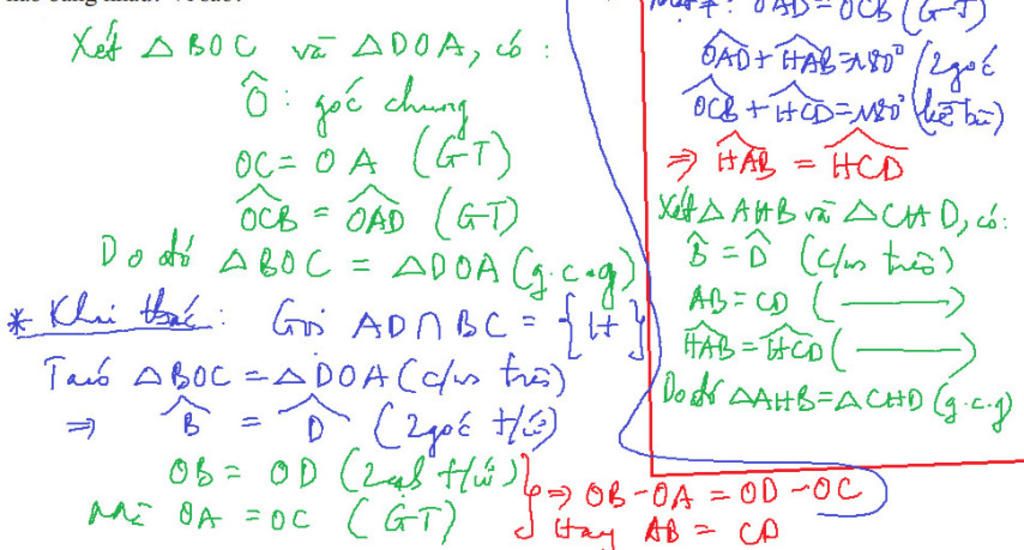 Xét △BOC và △DOA, có :
Ô : góc chung
OC = OA (GT)
OCB = OAD (GT)
Do đó △BOC = △DOA (g.c.g)
* Khai thác : Gọi AD ∩ BC = {H}
Ta có △BOC = △DOA (c/m trên)
⇒ B = D (2 góc t/ứ)
OB = OD (2 cạnh t/ứ)
Mà OA = OC (GT)
⇒ OB - OA = OD - OC
Hay AB = CD
OAD = OCB (GT)
OAD + HAB = 180° (2 góc
OCB + HCD = 180° kề bù)
⇒ HAB = HCD
Xét △AHB và △CHD, có:
B = D (c/m trên)
AB = CD ( )
HAB = HCD ( )
Do đó △AHB = △CHD (g.c.g)